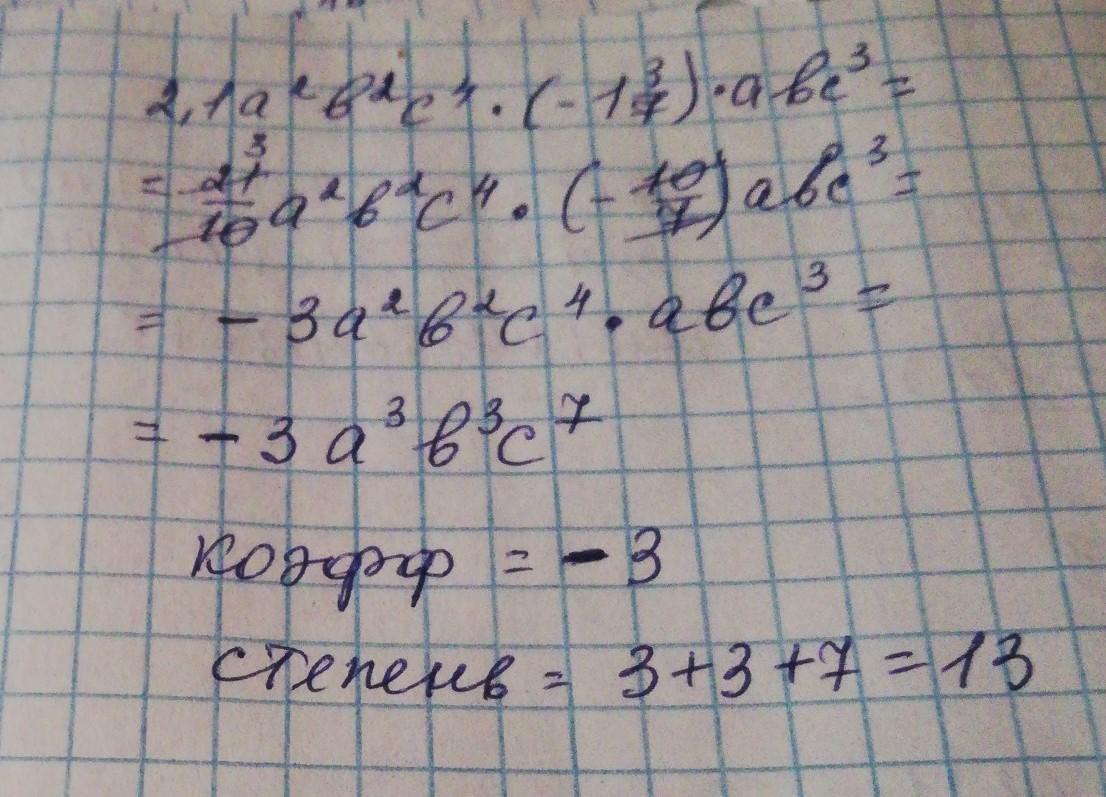 2,1a²в²c⁴ · (-1 3/7) · aвc³ =
= 21/10 3 a²в²c⁴ · (- 10/7) aвc³ =
= - 3a²в²c⁴ · aвc³ =
= - 3a³в³c⁷
коэфф = - 3
степень = 3+3+7=13